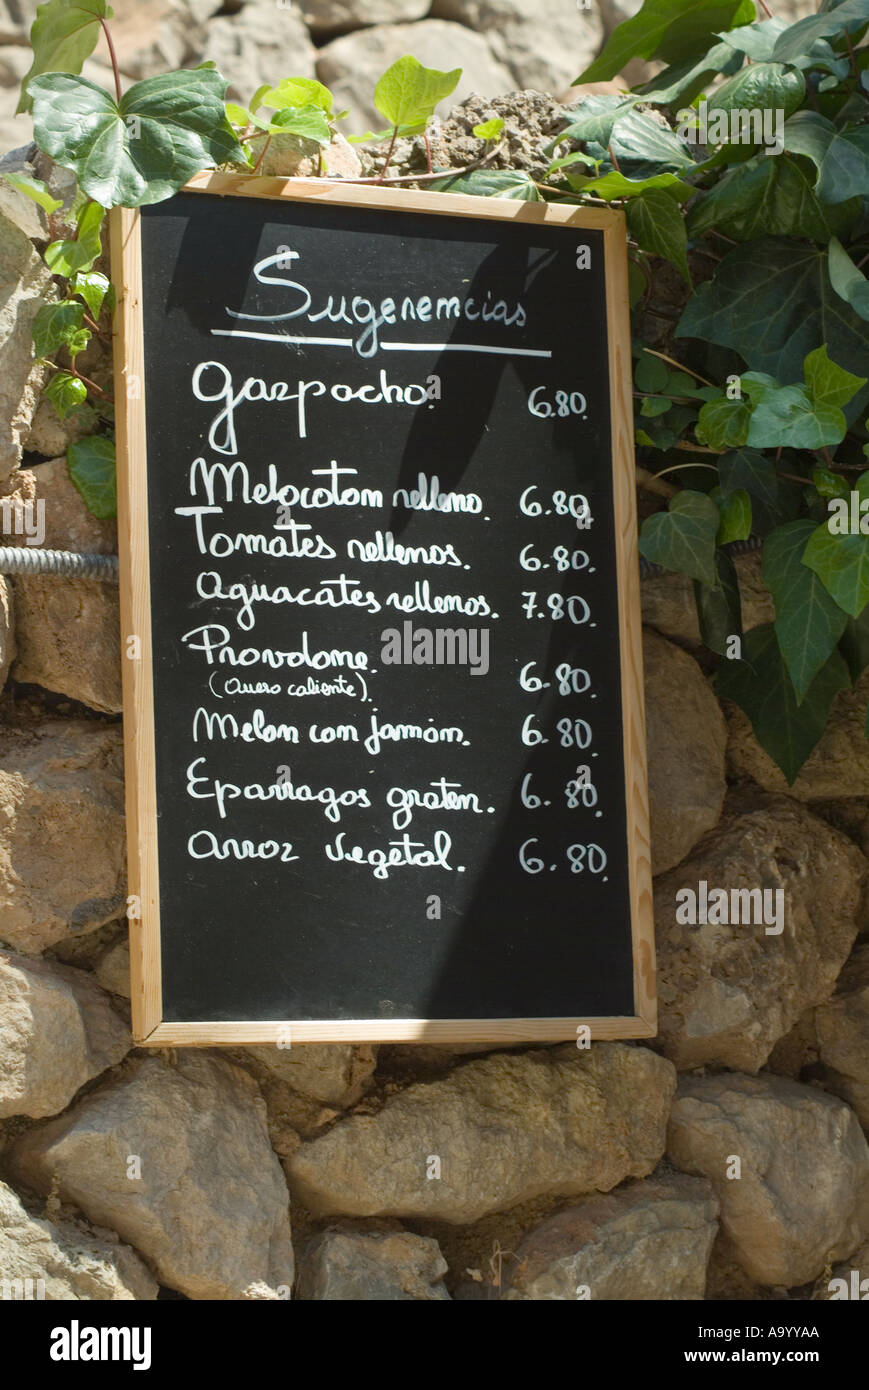 Sugerencias
Gazpacho. 6.80.
Melocoton relleno. 6.80.
Tomates rellenos. 6.80.
Aguacates rellenos. 7.80.
Provolone. 6.80.
(Queso caliente).
Melon con jamón. 6.80.
Eparragos graten. 6.80.
Arroz vegetal. 6.80.
alamy
www.alamy.com
A9YYAA